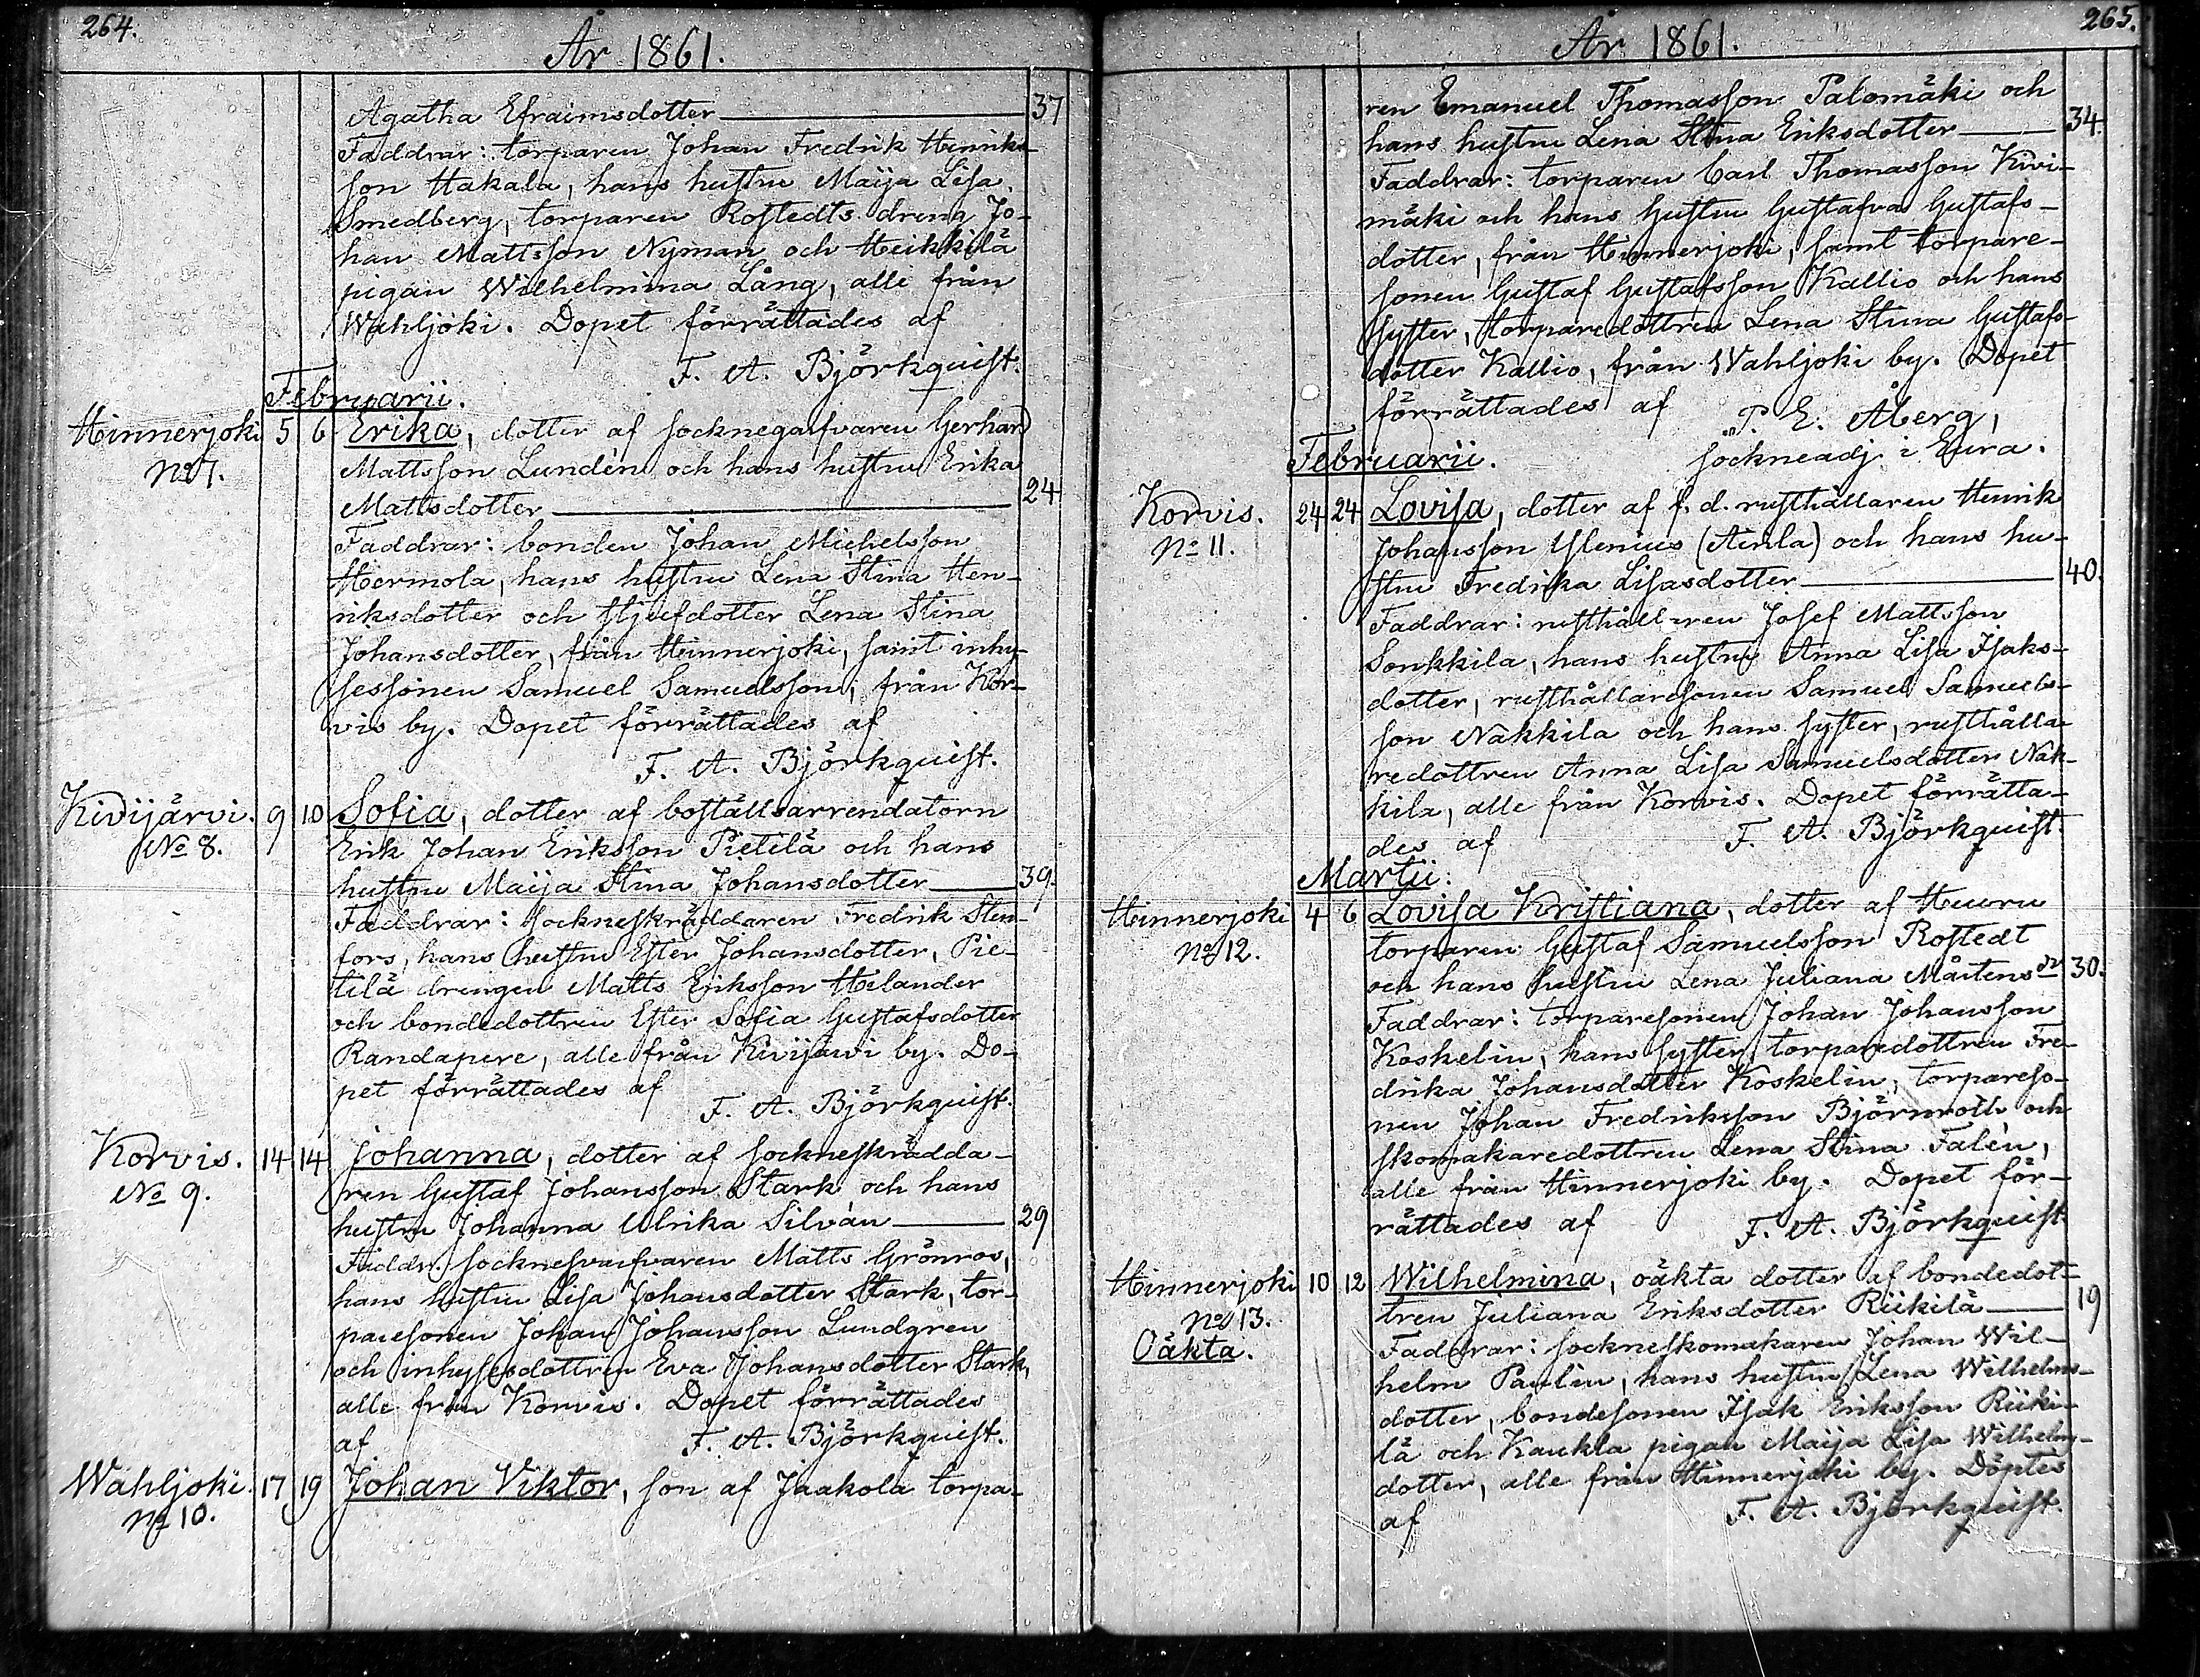 264.
År 1861.
Agatha Efraimsdotter 37
Faddrar: torparen Johan Fredrik Henriks-
son Hakala, hans hustru Maija Lisa
Smedberg, torparen Rostedts dreng Jo-
han Mattsson Nyman och Heikkilä
pigan Wilhelmina Lång, alle från
Wahljoki. Dopet förrättades af
F. A. Björkquist.
Februarii.
Hinnerjoki 5 6 Erika, dotter af socknegarfvaren Gerhard
No 7. Mattsson Lundén och hans hustru Erika
Mattsdotter 24
Faddrar: bonden Johan Michelsson
Hermola, hans hustru Lena Stina Hen-
riksdotter och stjufdotter Lena Stina
Johansdotter, från Hinnerjoki, samt inhy-
sessonen Samuel Samuelsson, från Kor-
vis by. Dopet förrättades af
F. A. Björkquist.
Kivijärvi. 9 10 Sofia, dotter af boställsarrendatorn
No 8. Erik Johan Eriksson Pietilä och hans
hustru Maija Stina Johansdotter 39.
Faddrar: sockneskräddaren Fredrik Sten-
fors, hans hustru Ester Johansdotter, Pie-
tilä drengen Matts Eriksson Helander
och bondedottren Ester Sofia Gustafsdotter
Randapere, alle från Kivijärvi by. Do-
pet förrättades af
F. A. Björkquist.
Korvis. 14 14 Johanna, dotter af sockneskrädda-
No 9. ren Gustaf Johansson Stark och hans
hustru Johanna Ulrika Silván 29
Faddr. socknesvarfvaren Matts Grönros,
hans hustru Lisa Johansdotter Stark, tor-
paresonen Johan Johansson Lundgren
och inhysesdottren Eva Johansdotter Stark,
alle från Korvis. Dopet förrättades
af F. A. Björkquist.
Wahljoki. 17 19 Johan Viktor, son af Jaakola torpa-
No 10.
265.
År 1861.
ren Emanuel Thomasson Palomäki och
hans hustru Lena Stina Eriksdotter 34.
Faddrar: torparen Carl Thomasson Kivi-
mäki och hans hustru Gustafva Gustafs-
dotter, från Hinnerjoki, samt torpare-
sonen Gustaf Gustafsson Kallio och hans
syster, torparedottren Lena Stina Gustafs-
dotter Kallio, från Wahljoki by. Dopet
förrättades af P. E. Åberg,
sockneadj. i Eura.
Februarii.
Korvis. 24 24 Lovisa, dotter af f. d. rusthållaren Henrik
No 11. Johansson Ylenius (Ainla) och hans hu-
stru Fredrika Lisasdotter 40.
Faddrar: rusthållaren Josef Mattsson
Sonkkila, hans hustru Anna Lisa Isaks-
dotter, rusthållaresonen Samuel Samuels-
son Näkkila och hans syster, rusthålla-
redottren Anna Lisa Samuelsdotter Näk-
kila, alle från Korvis. Dopet förrätta-
des af F. A. Björkquist.
Martii.
Hinnerjoki 4 6 Lovisa Kristiana, dotter af Heuru
No 12. torparen Gustaf Samuelsson Rostedt
och hans hustru Lena Juliana Mårtensdr 30.
Faddrar: torparesonen Johan Johansson
Koskelin, hans syster, torparedottren Fre-
drika Johansdotter Koskelin, torpareso-
nen Johan Fredriksson Björnroth och
skomakaredottren Lena Stina Falén,
alle från Hinnerjoki by. Dopet för-
rättades af F. A. Björkquist
Hinnerjoki 10 12 Wilhelmina, oäkta dotter af bondedot-
No 13. tren Juliana Eriksdotter Riikilä 19
Oäkta. Faddrar: sockneskomakaren Johan Wil-
helm Paulin, hans hustru Lena Wilhelms-
dotter, bondesonen Isak Eriksson Riiki-
lä och Kaukla pigan Maija Lisa Wilhelms-
dotter, alle från Hinnerjoki by. Döptes
af F. A. Björkquist.